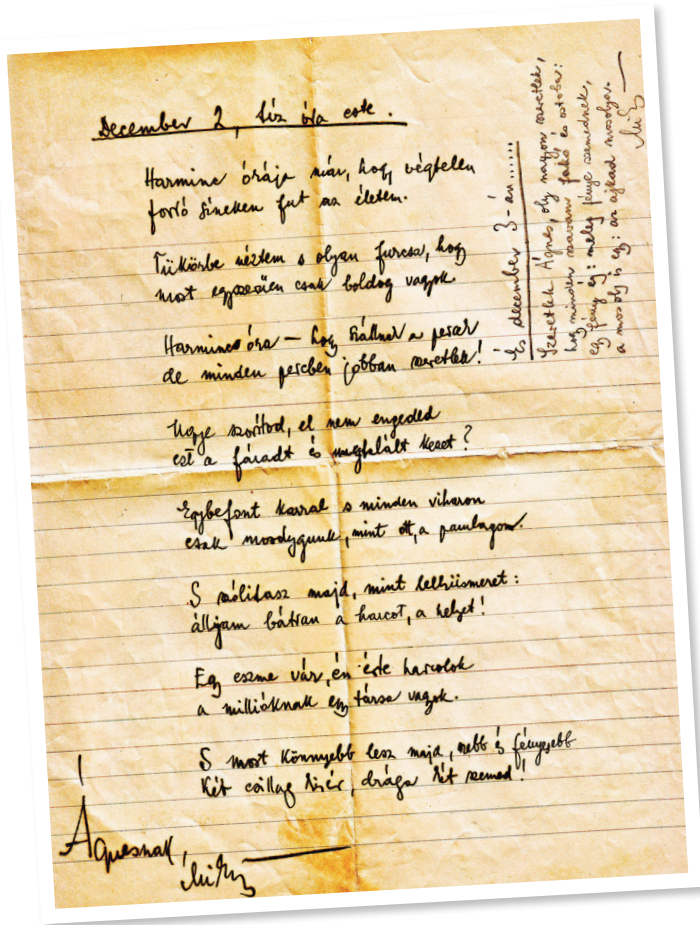 December 2, tíz óra este.
Harminc órája már, hogy végtelen
forró síneken fut az életem.
Tükörbe néztem s olyan furcsa, hogy
most egyszerűen csak boldog vagyok.
Harminc óra — hogy szállnak a percek
de minden percben jobban szeretlek!
Ugye szorítod, el nem engeded
ezt a fáradt és megtalált kezet?
Egybefont karral s minden viharon
csak mosolygunk, mint ott, a pamlagon.
S szólítasz majd, mint lelkiismeret:
álljam bátran a harcot, a helyet!
Egy eszme vár, én érte harcolok
a millióknak egy társa vagyok.
S most könnyebb lesz majd, szebb és fényesebb
Két csillag kísér, drága két szemed!
Ágnesnak,
És december 3-án......
Szeretlek Ágnes, oly nagyon szeretlek,
hogy minden szavam fakó és ostoba:
egy fény ég: meleg fénye szemednek,
a mosoly is egy: az ajkad mosolya.